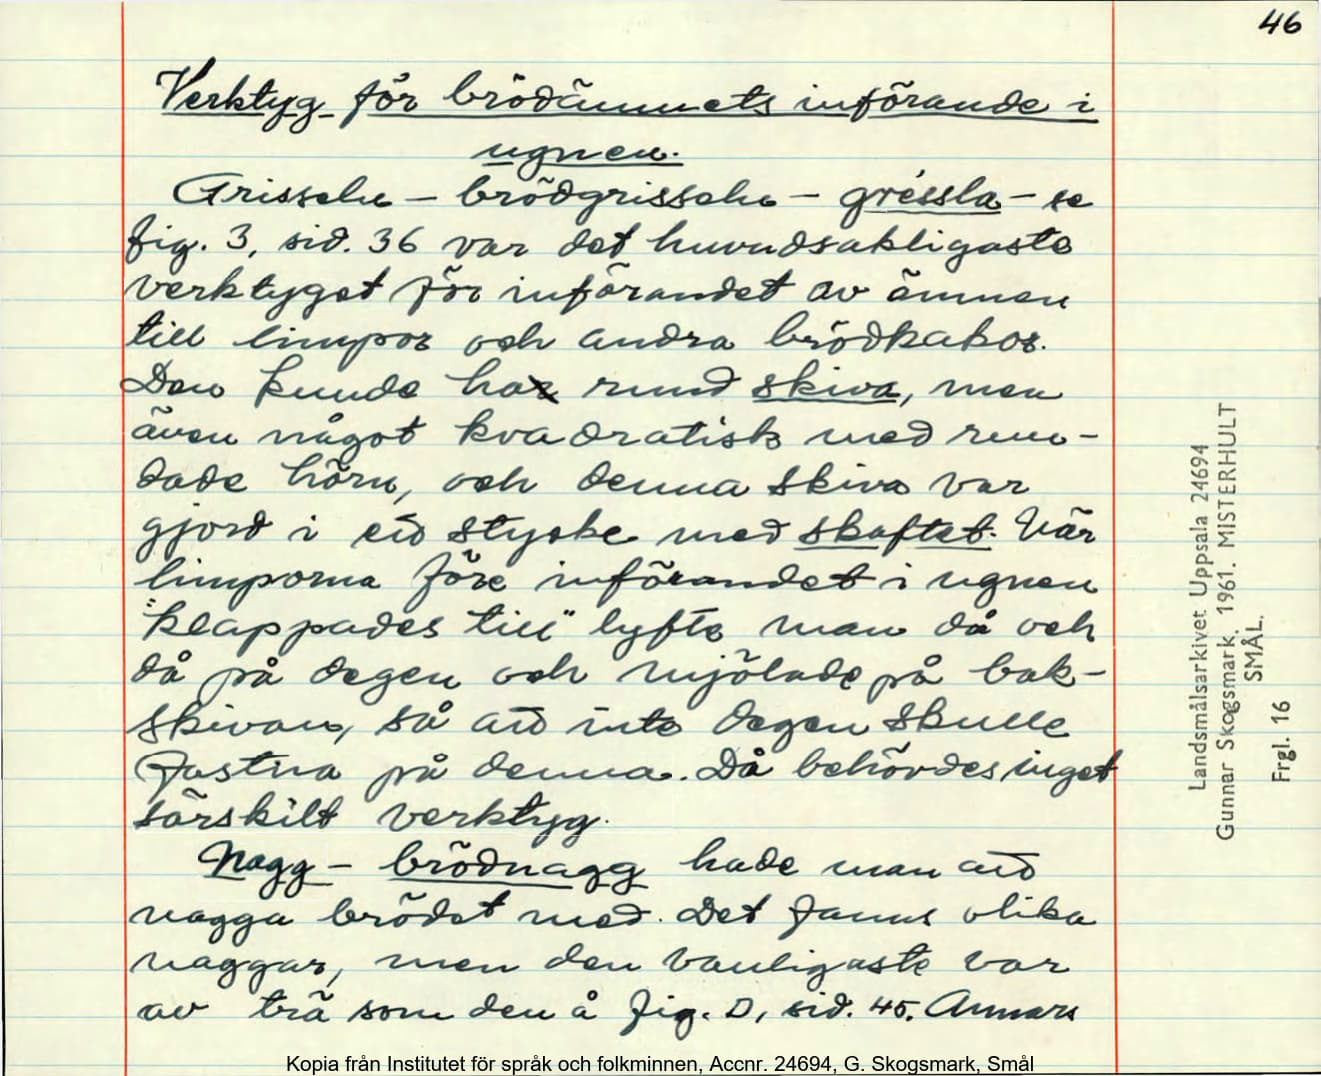 46
Verktyg för brödämnets införande i
ugnen.
Grisseln – brödgrisseln – gréssla – se
fig. 3, sid. 36 var det huvudsakligaste
verktyget för införandet av ämnen
till limpor och andra brödkakor.
Den kunde ha rund skiva, men
även något kvadratisk med run-
dade hörn, och denna skiva var
gjord i ett stycke med skaftet. När
limporna före införandet i ugnen
"klappades till" lyfte man då och
då på degen och mjölade på bak-
skivan, så att inte degen skulle
fastna på denna. Då behövdes inget
särskilt verktyg.
Nagg – brödnagg hade man att
nagga brödet med. Det fanns olika
naggar, men den vanligaste var
av trä som den å fig. D, sid. 45. Annars
Landsmålsarkivet Uppsala 24694
Gunnar Skogsmark. 1961. MISTERHULT
SMÅL.
Frgl. 16
Kopia från Institutet för språk och folkminnen, Accnr. 24694, G. Skogsmark, Smål